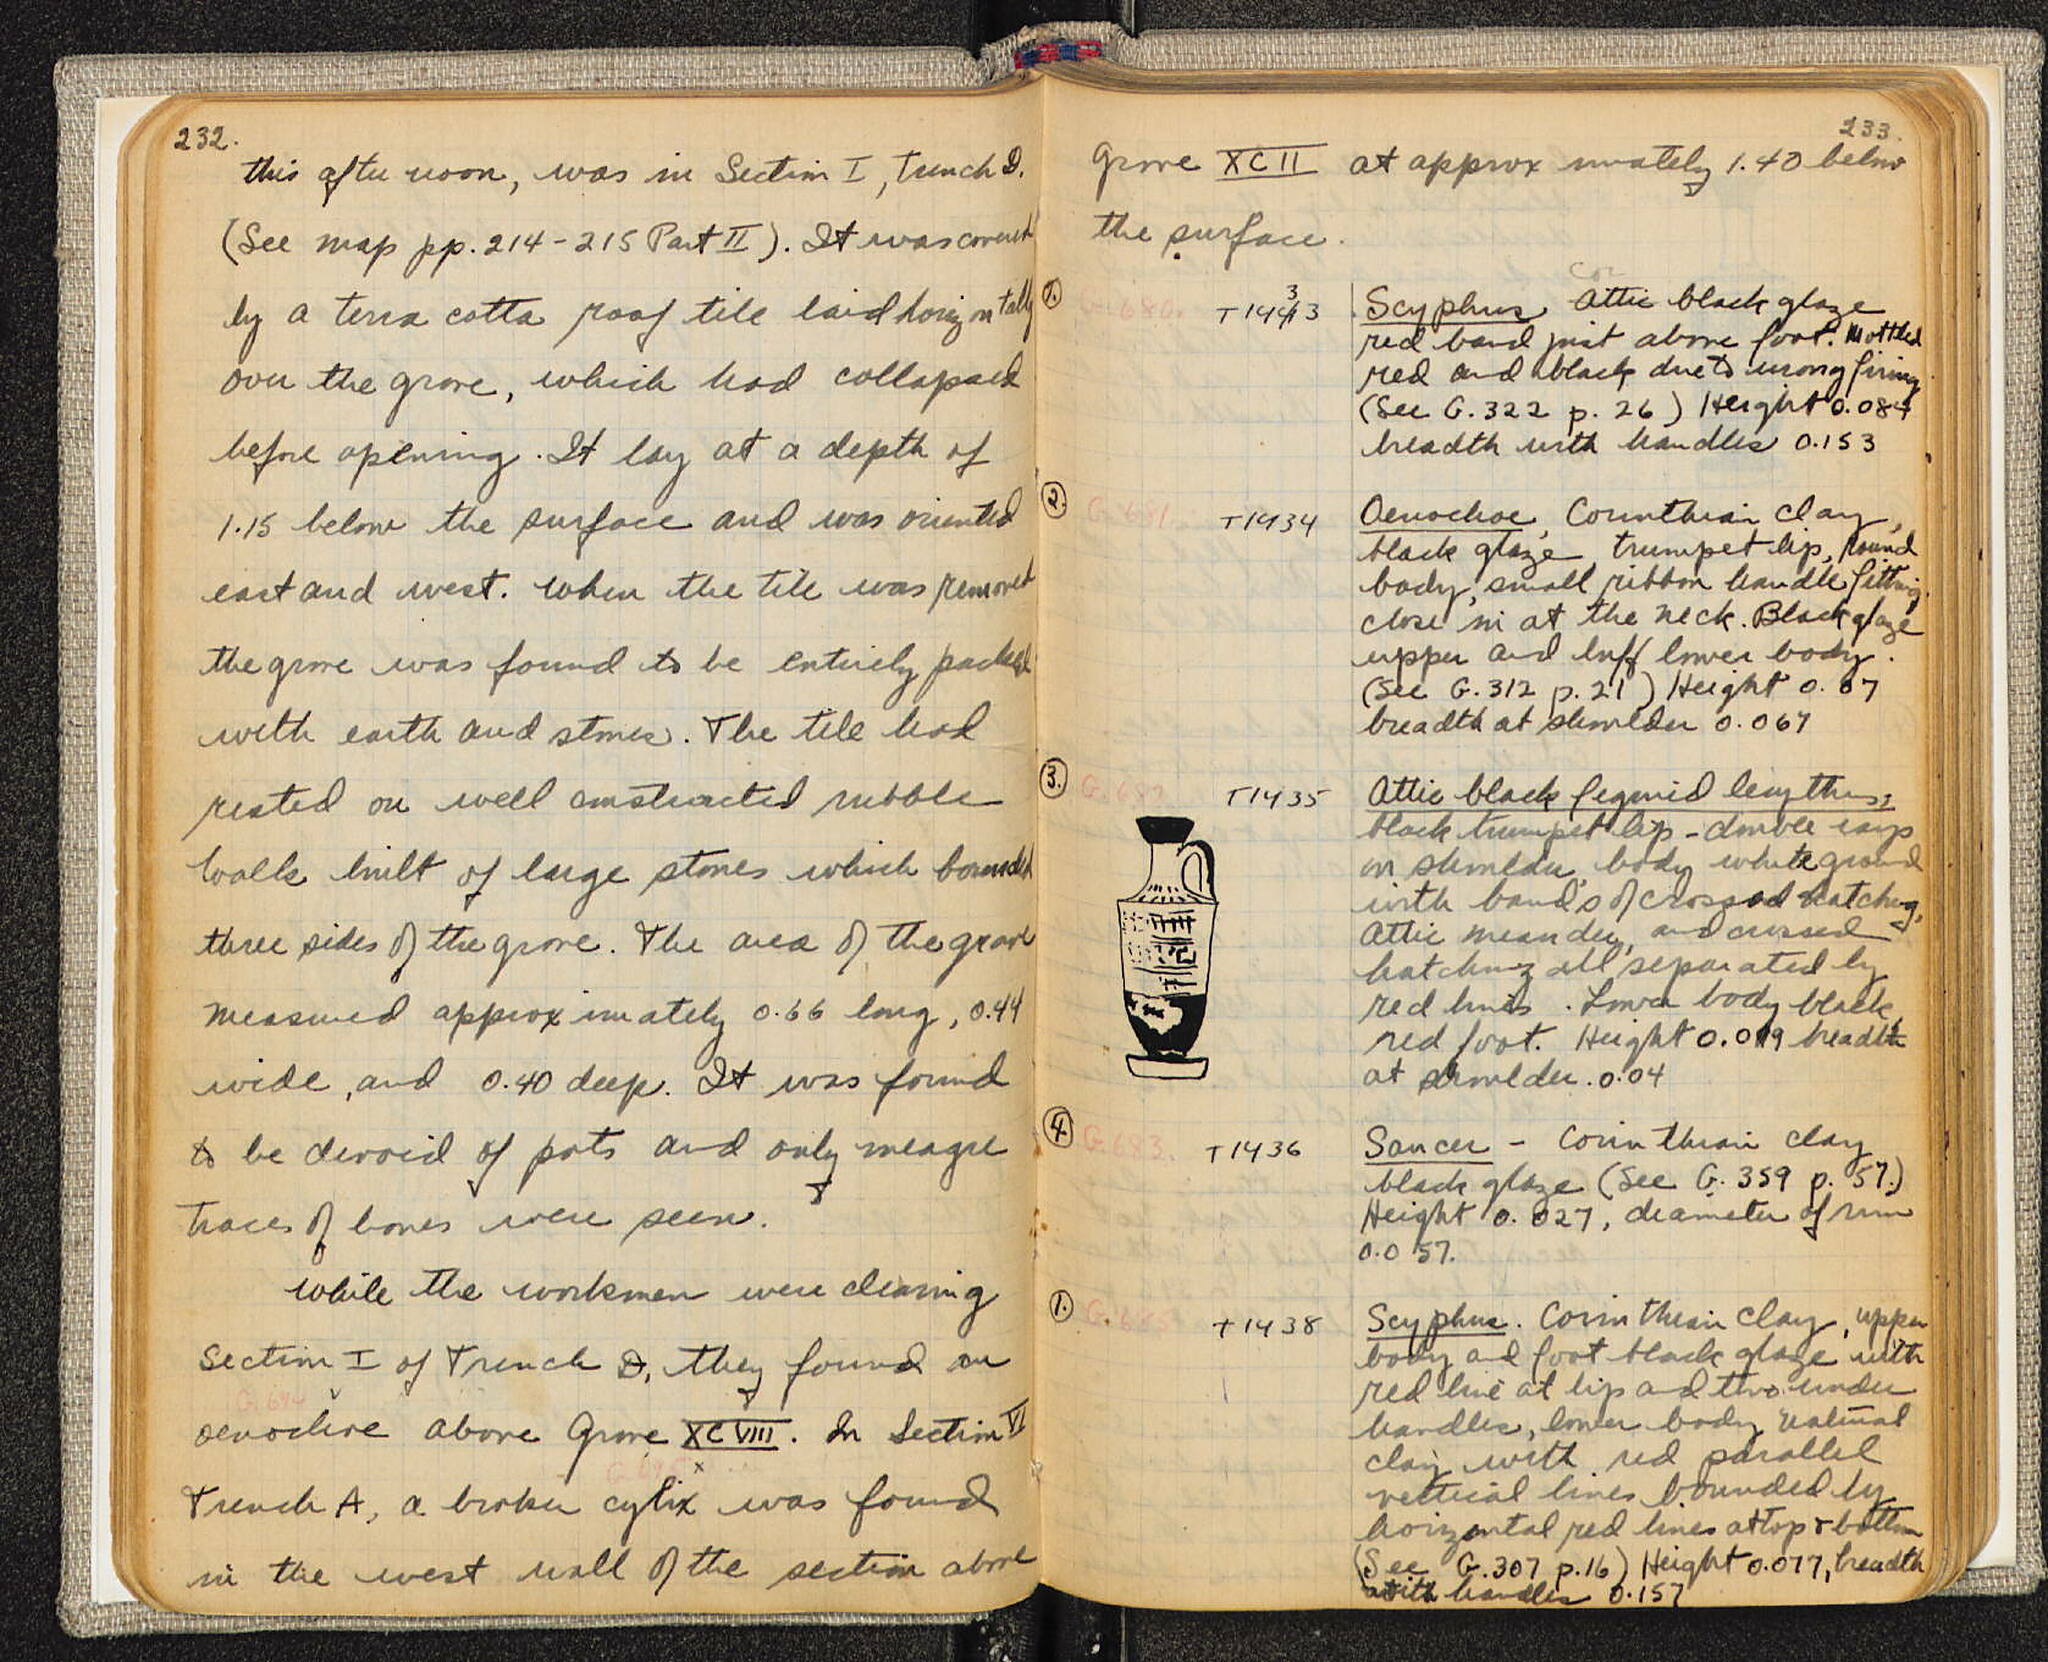 232.
this afternoon, was in Section I, Trench D.
(See map pp. 214-215 Part II). It was covered
by a terra cotta roof tile laid horizontally
over the grave, which had collapsed
before opening. It lay at a depth of
1.15 below the surface and was oriented
east and west. When the tile was removed
the grave was found to be entirely packed
with earth and stones. The tile had
rested on well constructed rubble
walls built of large stones which bounded
three sides of the grave. The area of the grave
measured approximately 0.66 long, 0.44
wide, and 0.40 deep. It was found
to be devoid of pots and only meagre
traces of bones were seen.
While the workmen were clearing
Section I of Trench D, they found an
oenochoe above Grave XCVIII. In Section VI
Trench A, a broken cylix was found
in the west wall of the section above
233.
Grave XCII at approximately 1.40 below
the surface.
1. G.680. T1433 Scyphus Attic black glaze
red band just above foot. Mottled
red and black due to wrong firing
(See G.322 p. 26) Height 0.084
breadth with handles 0.153
2. G.681. T1434 Oenochoe, Corinthian clay,
black glaze trumpet lip, round
body, small ribbon handle fitting
close in at the neck. Black glaze
upper and buff lower body.
(See G.312 p.21) Height 0.07
breadth at shoulder 0.067
3. G.682 T1435 Attic black figured lecythus;
black trumpet lip - double rays
on shoulder, body white ground
with bands of crossed hatching,
Attic meander, and crossed
hatching all separated by
red lines. Lower body black,
red foot. Height 0.099 breadth
at shoulder. 0.04
4. G.683. T1436 Saucer - Corinthian clay
black glaze (See G. 359 p. 57.)
Height 0.027, diameter of rim
0.057.
1. G.685 T1438 Scyphus. Corinthian clay, upper
body and foot black glaze with
red line at lip and two under
handles, lower body natural
clay with red parallel
vertical lines bounded by
horizontal red lines at top & bottom
(See G.307 p.16) Height 0.077, breadth
with handles 0.157